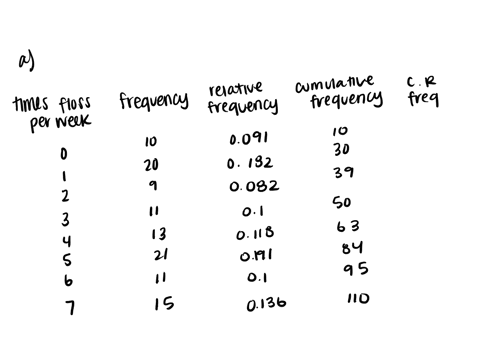 a)
times floss per week frequency relative frequency cumulative frequency C.R freq
0 10 0.091 10
1 20 0.182 30
2 9 0.082 39
3 11 0.1 50
4 13 0.118 63
5 21 0.191 84
6 11 0.1 95
7 15 0.136 110